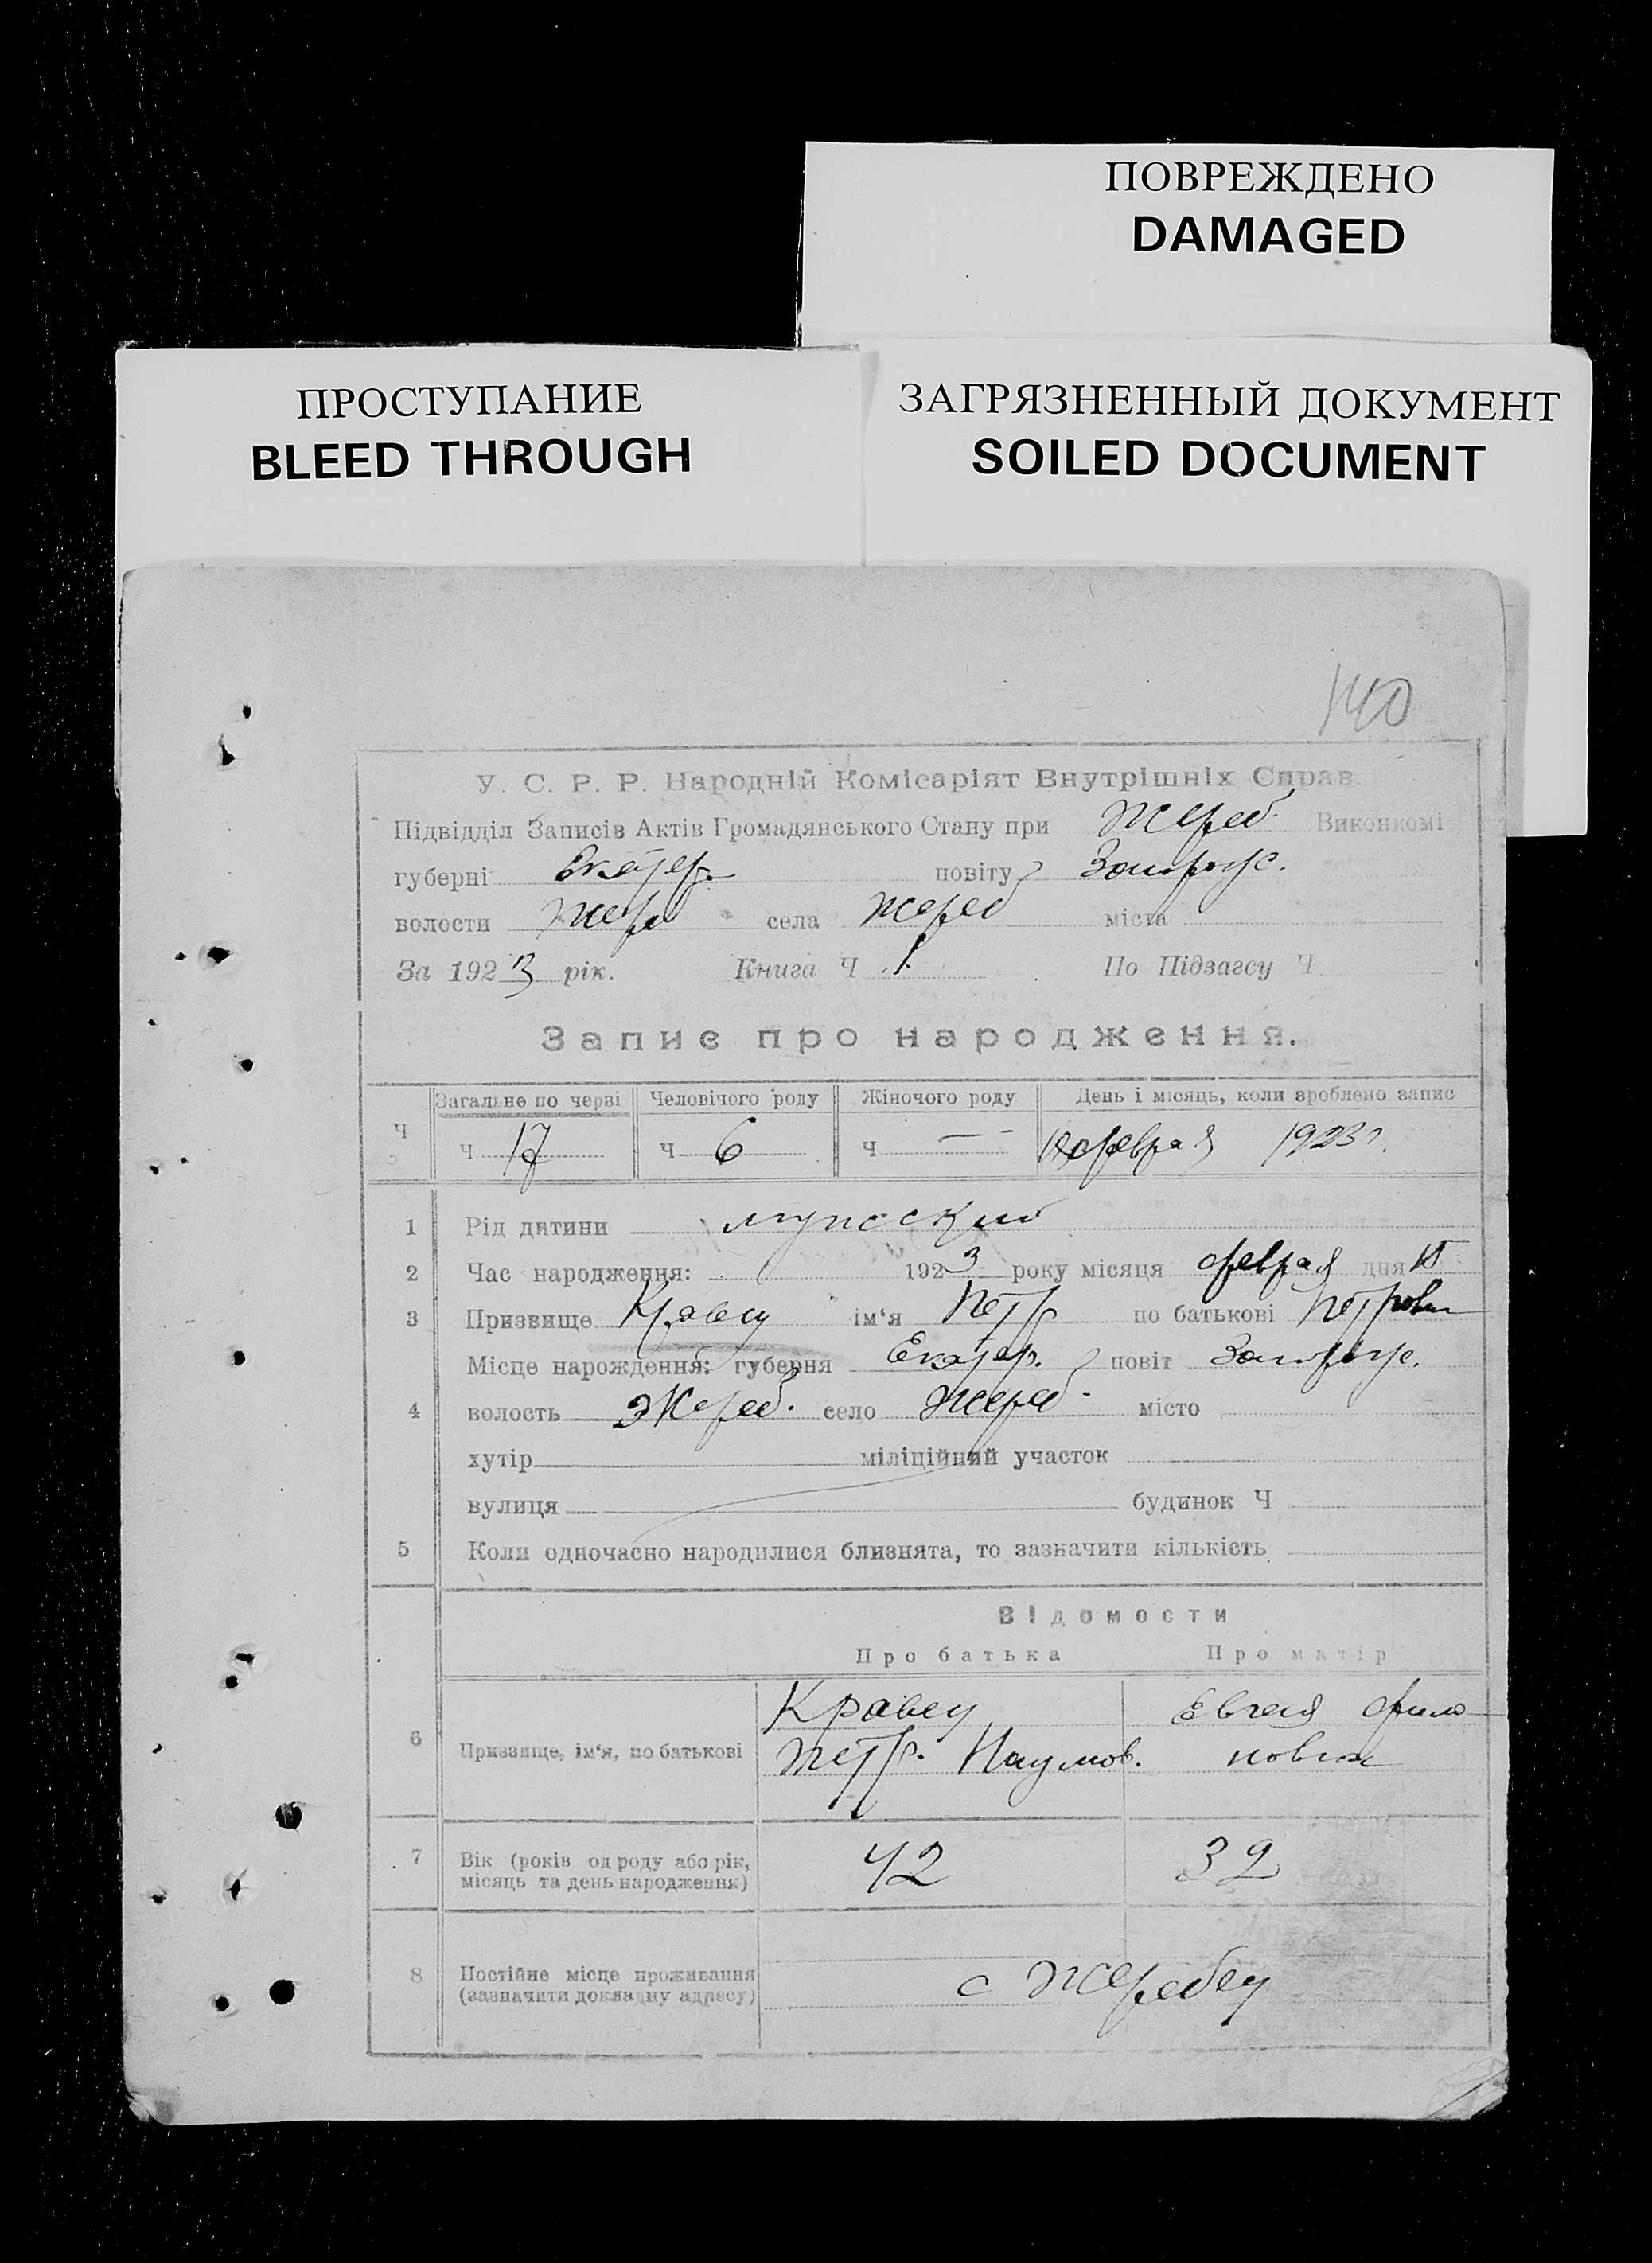 ПОВРЕЖДЕНО
DAMAGED
ПРОСТУПАНИЕ
BLEED THROUGH
ЗАГРЯЗНЕННЫЙ ДОКУМЕНТ
SOILED DOCUMENT
140
У. С. Р. Р. Народній Комісаріят Внутрішніх Справ.
Підвідділ Записів Актів Громадянського Стану при Жереб. Виконкомі
губерні Екатер. повіту Запорож.
волости Жереб села Жереб міста
За 1923 рік. Книга Ч 1. По Підзагсу Ч
Запис про народження.
Загальне по черві Человічого роду Жіночого роду День і місяць, коли зроблено запис
Ч Ч 17 Ч 6 Ч — февраля 1923 г.
1 Рід дитини мужской
2 Час народження: 1923 року місяця февраля дня 15
3 Призвище Кравец ім‘я Петр по батькові Петрович
Місце нарождення: губерня Екатер. повіт Запорож.
4 волость Жереб. село Жереб. місто
хутір міліційний участок
вулиця будинок Ч
5 Коли одночасно народилися близнята, то зазначити кількість
Відомости
Про батька Про матір
Кравец Евгения Фили
6 Призвище, ім‘я, по батькові Петр. Наумов. повна
7 Вік (років од роду або рік, 42 32
місяць та день народження)
8 Постійне місце проживання с Жеребец
(зазначити докладну адресу)